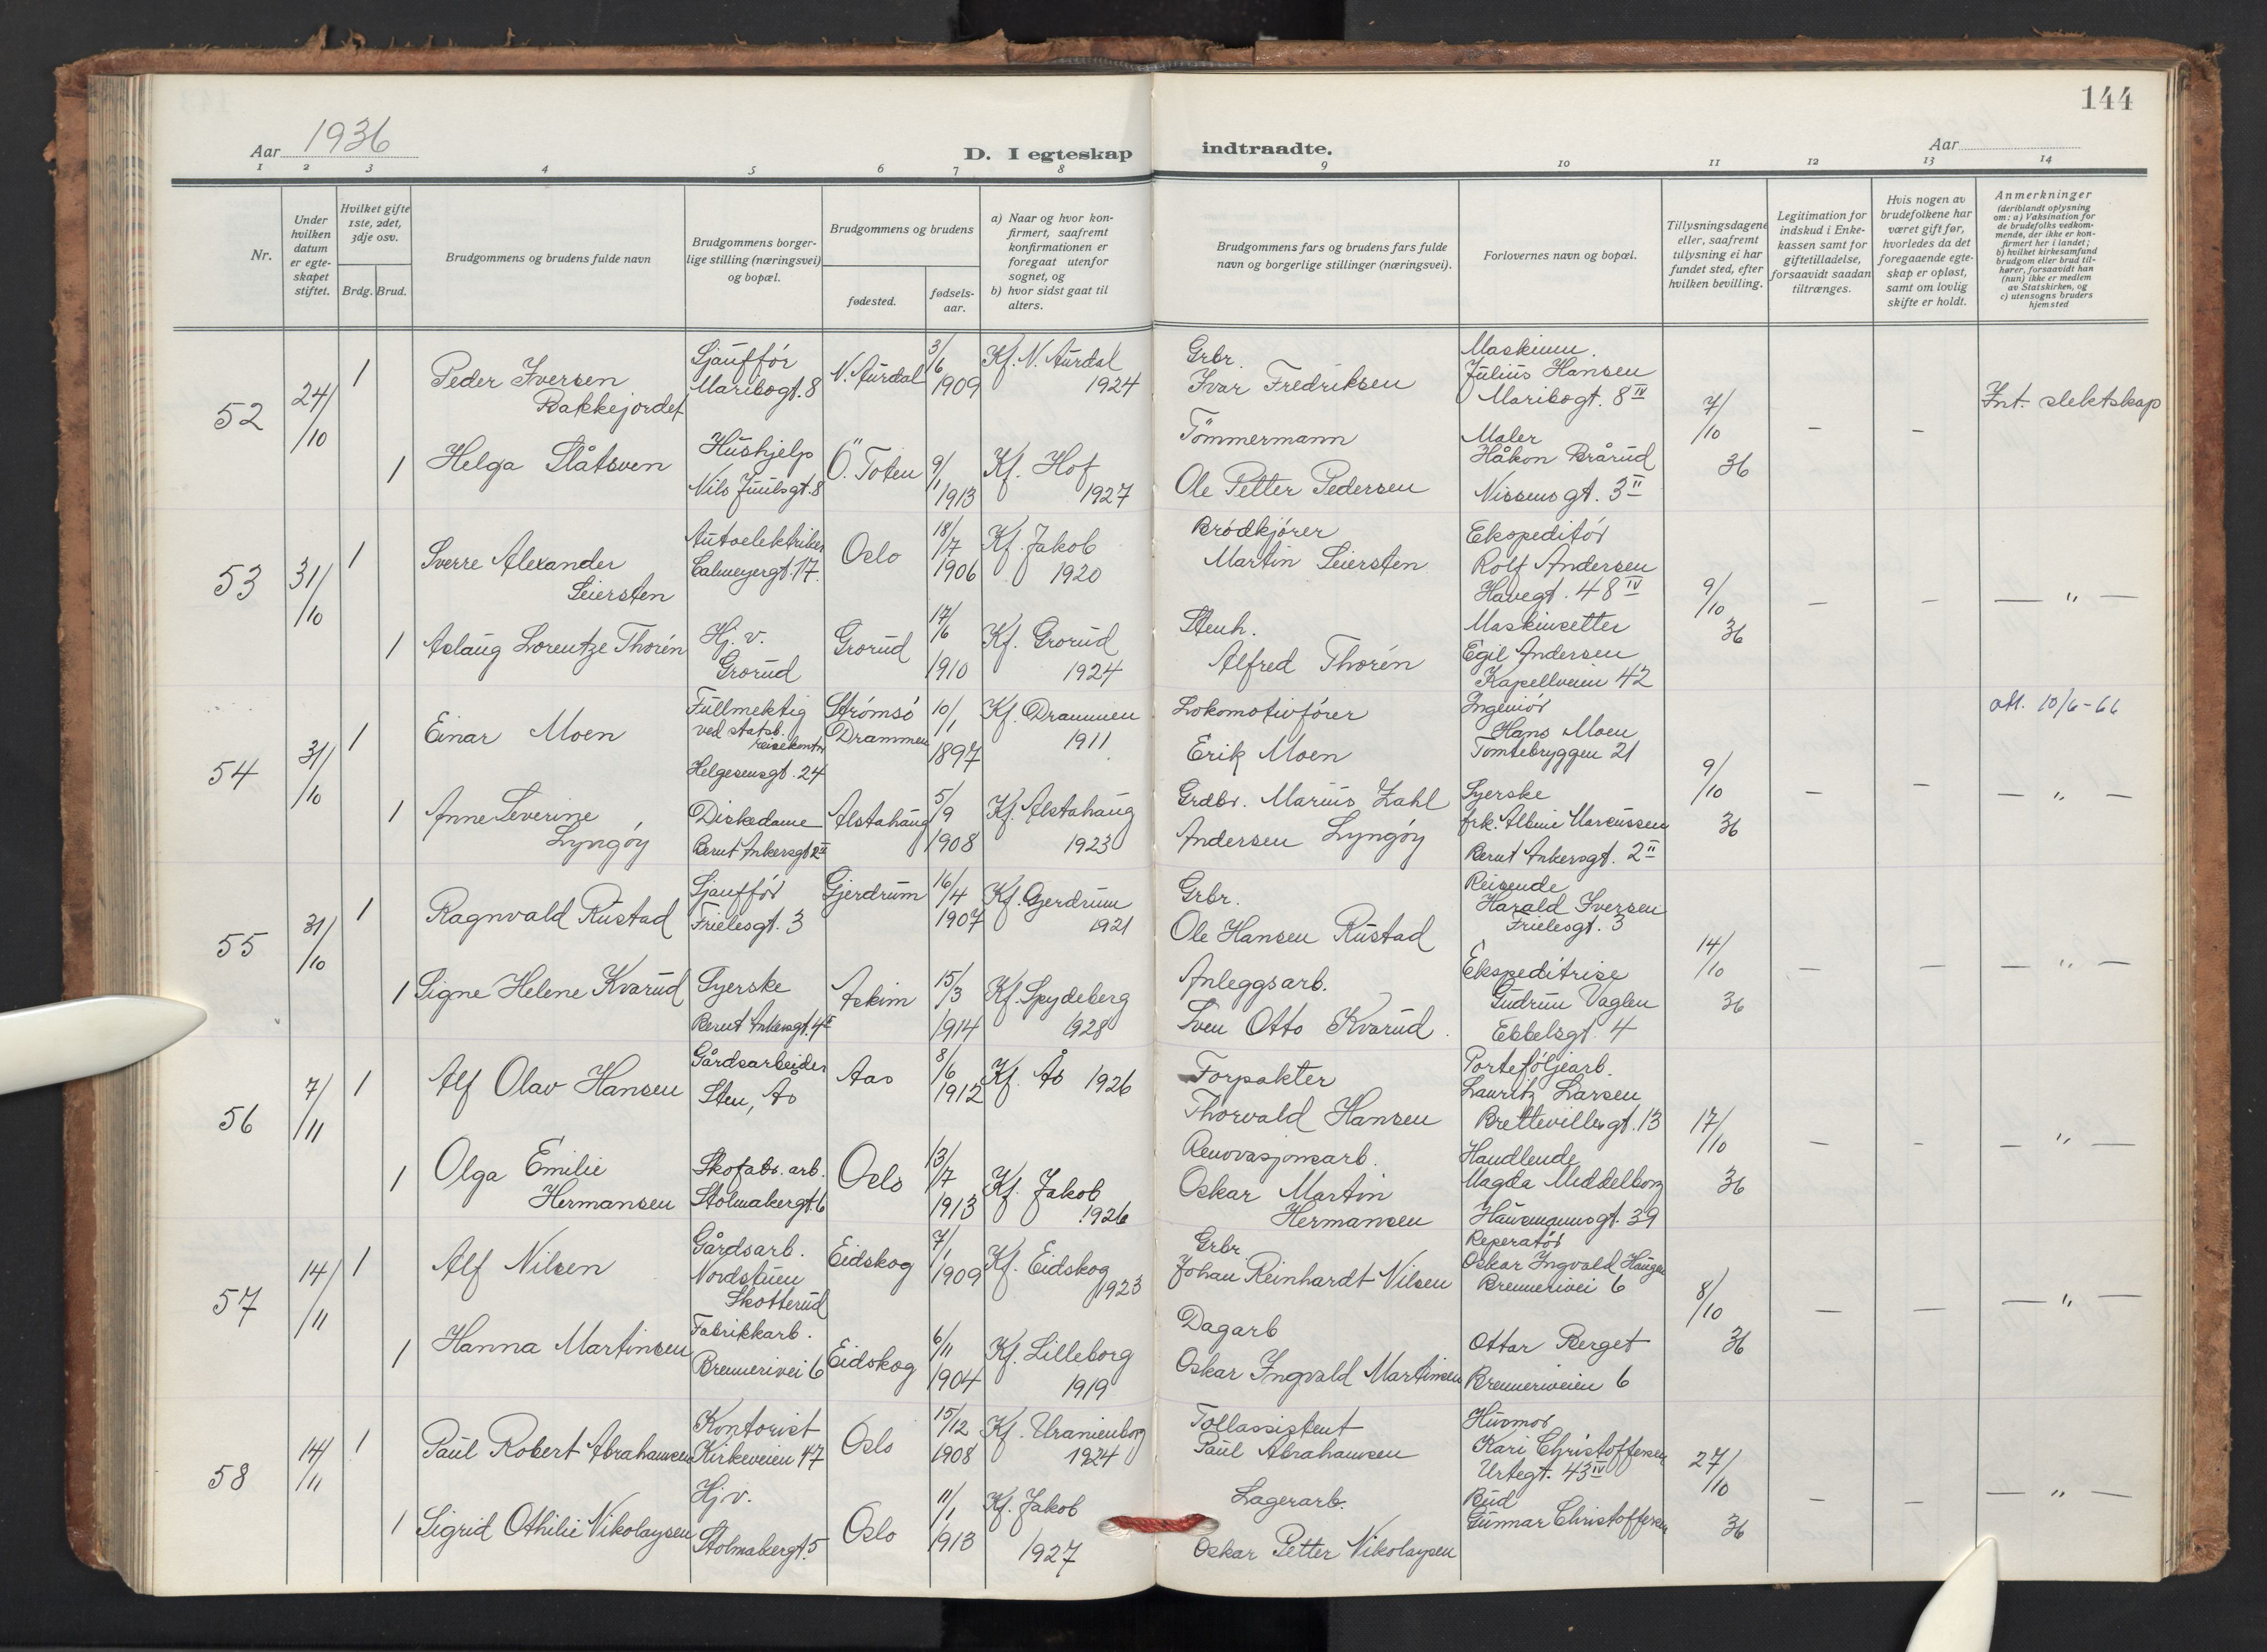 144
Aar 1936
D. I egteskap indtraadte.
Aar
1 2 3 4 5 6 7 8 9 10 11 12 13 14
Nr.
Under hvilken datum er egteskapet stiftet.
Hvilket gifte 1ste, 2det, 3dje osv.
Brdg. Brud.
Brudgommens og brudens fulde navn
Brudgommens borgerlige stilling (næringsvei) og bopæl.
Brudgommens og brudens
fødested.
fødselsaar.
a) Naar og hvor konfirmert, saafremt konfirmationen er foregaat utenfor sognet, og
b) hvor sidst gaat til alters.
Brudgommens fars og brudens fars fulde navn og borgerlige stillinger (næringsvei).
Forlovernes navn og bopæl.
Tillysningsdagene eller, saafremt tillysning ei har fundet sted, efter hvilken bevilling.
Legitimation for indskud i Enkekassen samt for giftetilladelse, forsaavidt saadan tiltrænges.
Hvis nogen av brudefolkene har været gift før, hvorledes da det foregaaende egteskap er opløst, samt om lovlig skifte er holdt.
Anmerkninger
(deriblandt oplysning om: a) Vaksination for de brudefolks vedkommende, der ikke er konfirmert her i landet;
b) hvilket kirkesamfund brudgom eller brud tilhører, forsaavidt han (hun) ikke er medlem av Statskirken, og
c) utensogns bruders hjemsted
52
24/10
1
Peder Iversen
Bakkejordet
Sjauffør
Maribogt. 8
N. Aurdal
3/6
1909
Kf. N. Aurdal
1924
Grbr.
Ivar Fredriksen
Maskinm.
Julius Hansen
Maribogt. 8 IV
7/10
36
—
—
Int. slektskap
1
Helga Slåtsven
Hushjelp
Nils Juulsgt. 8
Ö. Toten
9/1
1913
Kf. Hof
1927
Tömmermann
Ole Petter Pedersen
Maler
Håkon Brårud
Nissens gt. 3 II
53
31/10
1
Sverre Alexander
Seiersten
Autoelektriker
Calmeyergt. 17.
Oslo
18/7
1906
Kf. Jakob
1920
Brödkjører
Martin Seiersten
Ekspeditør
Rolf Andersen
Havegt. 48 IV
9/10
36
—
—
— " —
1
Aslaug Lorentze Thorén
Hj. v.
Grorud
Grorud
17/6
1910
Kf. Grorud
1924
Stenh.
Alfred Thorén
Maskinsetter
Egil Andersen
Kapellveien 42
54
31/10
1
Einar Moen
Fullmektig
ved statsb.
reisekontor
Helgesensgt. 24
Strømsö
Drammen
10/1
1897
Kf. Drammen
1911
Lokomotivfører
Erik Moen
Ingeniør
Hans Moen
Tomtebryggen 21
9/10
36
—
—
— " —
att. 10/6-66
1
Anne Severine
Lyngøy
Diskedame
Bernt Ankersgt 2 II
Alstahaug
5/9
1908
Kf. Alstahaug
1923
Grdbr. Marius Zahl
Andersen Lyngøy
Syerske
frk. Albine Marcussen
Bernt Ankersgt. 2 II
55
31/10
1
Ragnvald Rustad
Sjauffør
Frielesgt. 3
Gjerdrum
16/4
1907
Kf. Gjerdrum
1921
Grbr.
Ole Hansen Rustad
Reisende
Harald Iversen
Frielesgt. 3
14/10
36
—
—
— " —
1
Signe Helene Kvarud
Syerske
Bernt Ankersgt. 4
Askim
15/3
1914
Kf. Spydeberg
1928
Anleggsarb.
Sven Otto Kvarud.
Ekspeditrise
Gudrun Vaglen
Ebbelsgt. 4
56
7/11
1
Alf Olav Hansen
Gårdsarbeider
Sten, As
Aas
8/6
1912
Kf. Ås 1926
Forpakter
Thorvald Hansen
Porteføljearb.
Lauritz Larsen
Brettevillesgt. 13
17/10
36
—
—
— " —
1
Olga Emilie
Hermansen
Skofabr. arb.
Stolmakergt. 6
Oslo
13/7
1913
Kf. Jakob
1926
Renovasjonsarb.
Oskar Martin
Hermansen
Handlende
Magda Middelborg
Hausmannsgt. 39
57
14/11
1
Alf Nilsen
Gårdsarb.
Nordstuen
Skotterud
Eidskog
7/1
1909
Kf. Eidskog
1923
Grbr.
Johan Reinhardt Nilsen
Reperatør
Oskar Ingvald Haugen
Brennerivei 6
8/10
36
—
—
— " —
1
Hanna Martinsen
Fabrikkarb.
Brennerivei 6
Eidskog
6/11
1904
Kf. Lilleborg
1919
Dagarb
Oskar Ingvald Martinsen
Ottar Berget
Brenneriveien 6
58
14/11
1
Paul Robert Abrahamsen
Kontorist
Kirkeveien 47
Oslo
15/12
1908
Kf. Uranienborg
1924
Tollassistent
Paul Abrahamsen
Husmor
Kari Christoffersen
Urtegt. 43 IV
27/10
36
—
—
— " —
1
Sigrid Othilie Nikolaysen
Hj v.
Stolmakergt. 5
Oslo
11/1
1913
Kf. Jakob
1927
Lagerarb.
Oskar Petter Nikolaysen
Bud
Gunnar Christoffersen